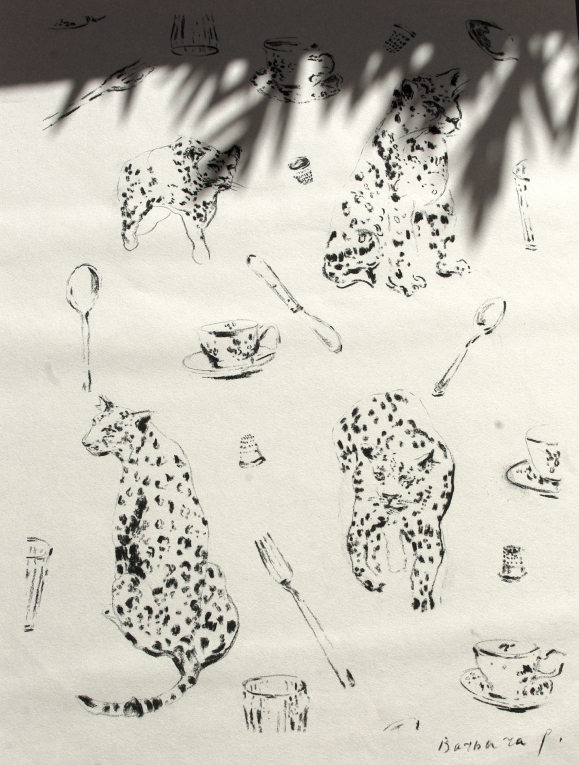 Barbara P.